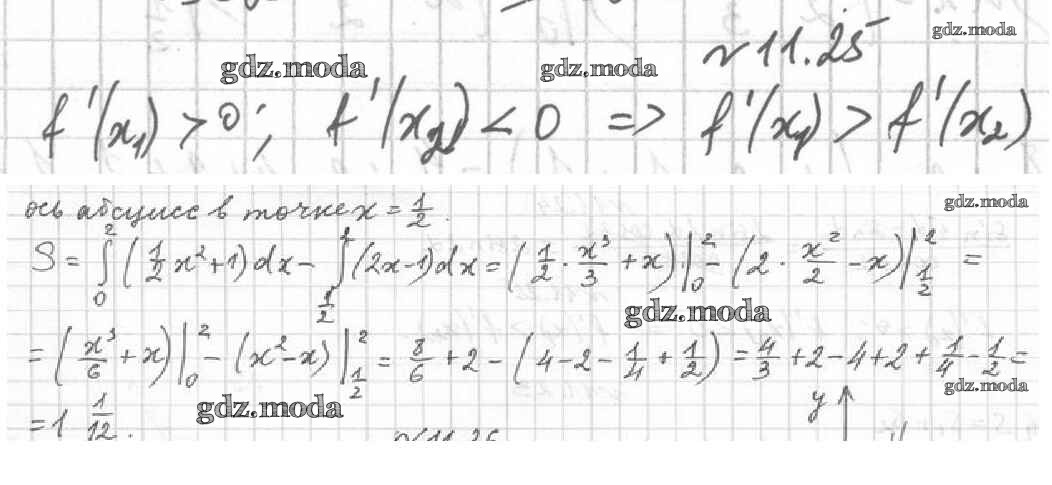 gdz.moda
№ 11.25
gdz.moda gdz.moda
f'(x₁) > 0; f'(x₂) < 0 => f'(x₁) > f'(x₂)
ось абсцисс в точке x = 1/2.
gdz.moda
S = ∫₀² (1/2 x² + 1) dx - ∫_{1/2}^2 (2x - 1) dx = (1/2 · x³/3 + x)|₀² - (2 · x²/2 - x)|_{1/2}^2 =
gdz.moda
= (x³/6 + x)|₀² - (x² - x)|_{1/2}^2 = 8/6 + 2 - (4 - 2 - 1/4 + 1/2) = 4/3 + 2 - 4 + 2 + 1/4 - 1/2 =
gdz.moda
gdz.moda
y
= 1 1/12.